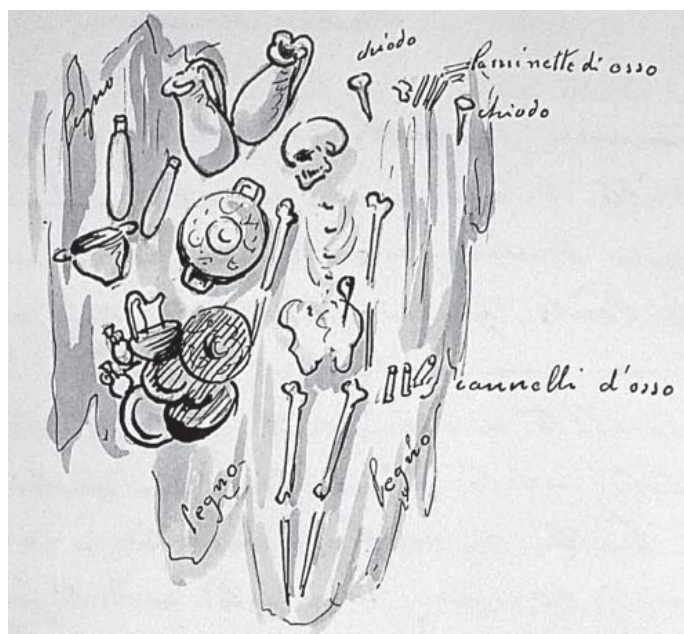 chiodo
laminette di osso
legno
chiodo
cannelli d'osso
legno
legno